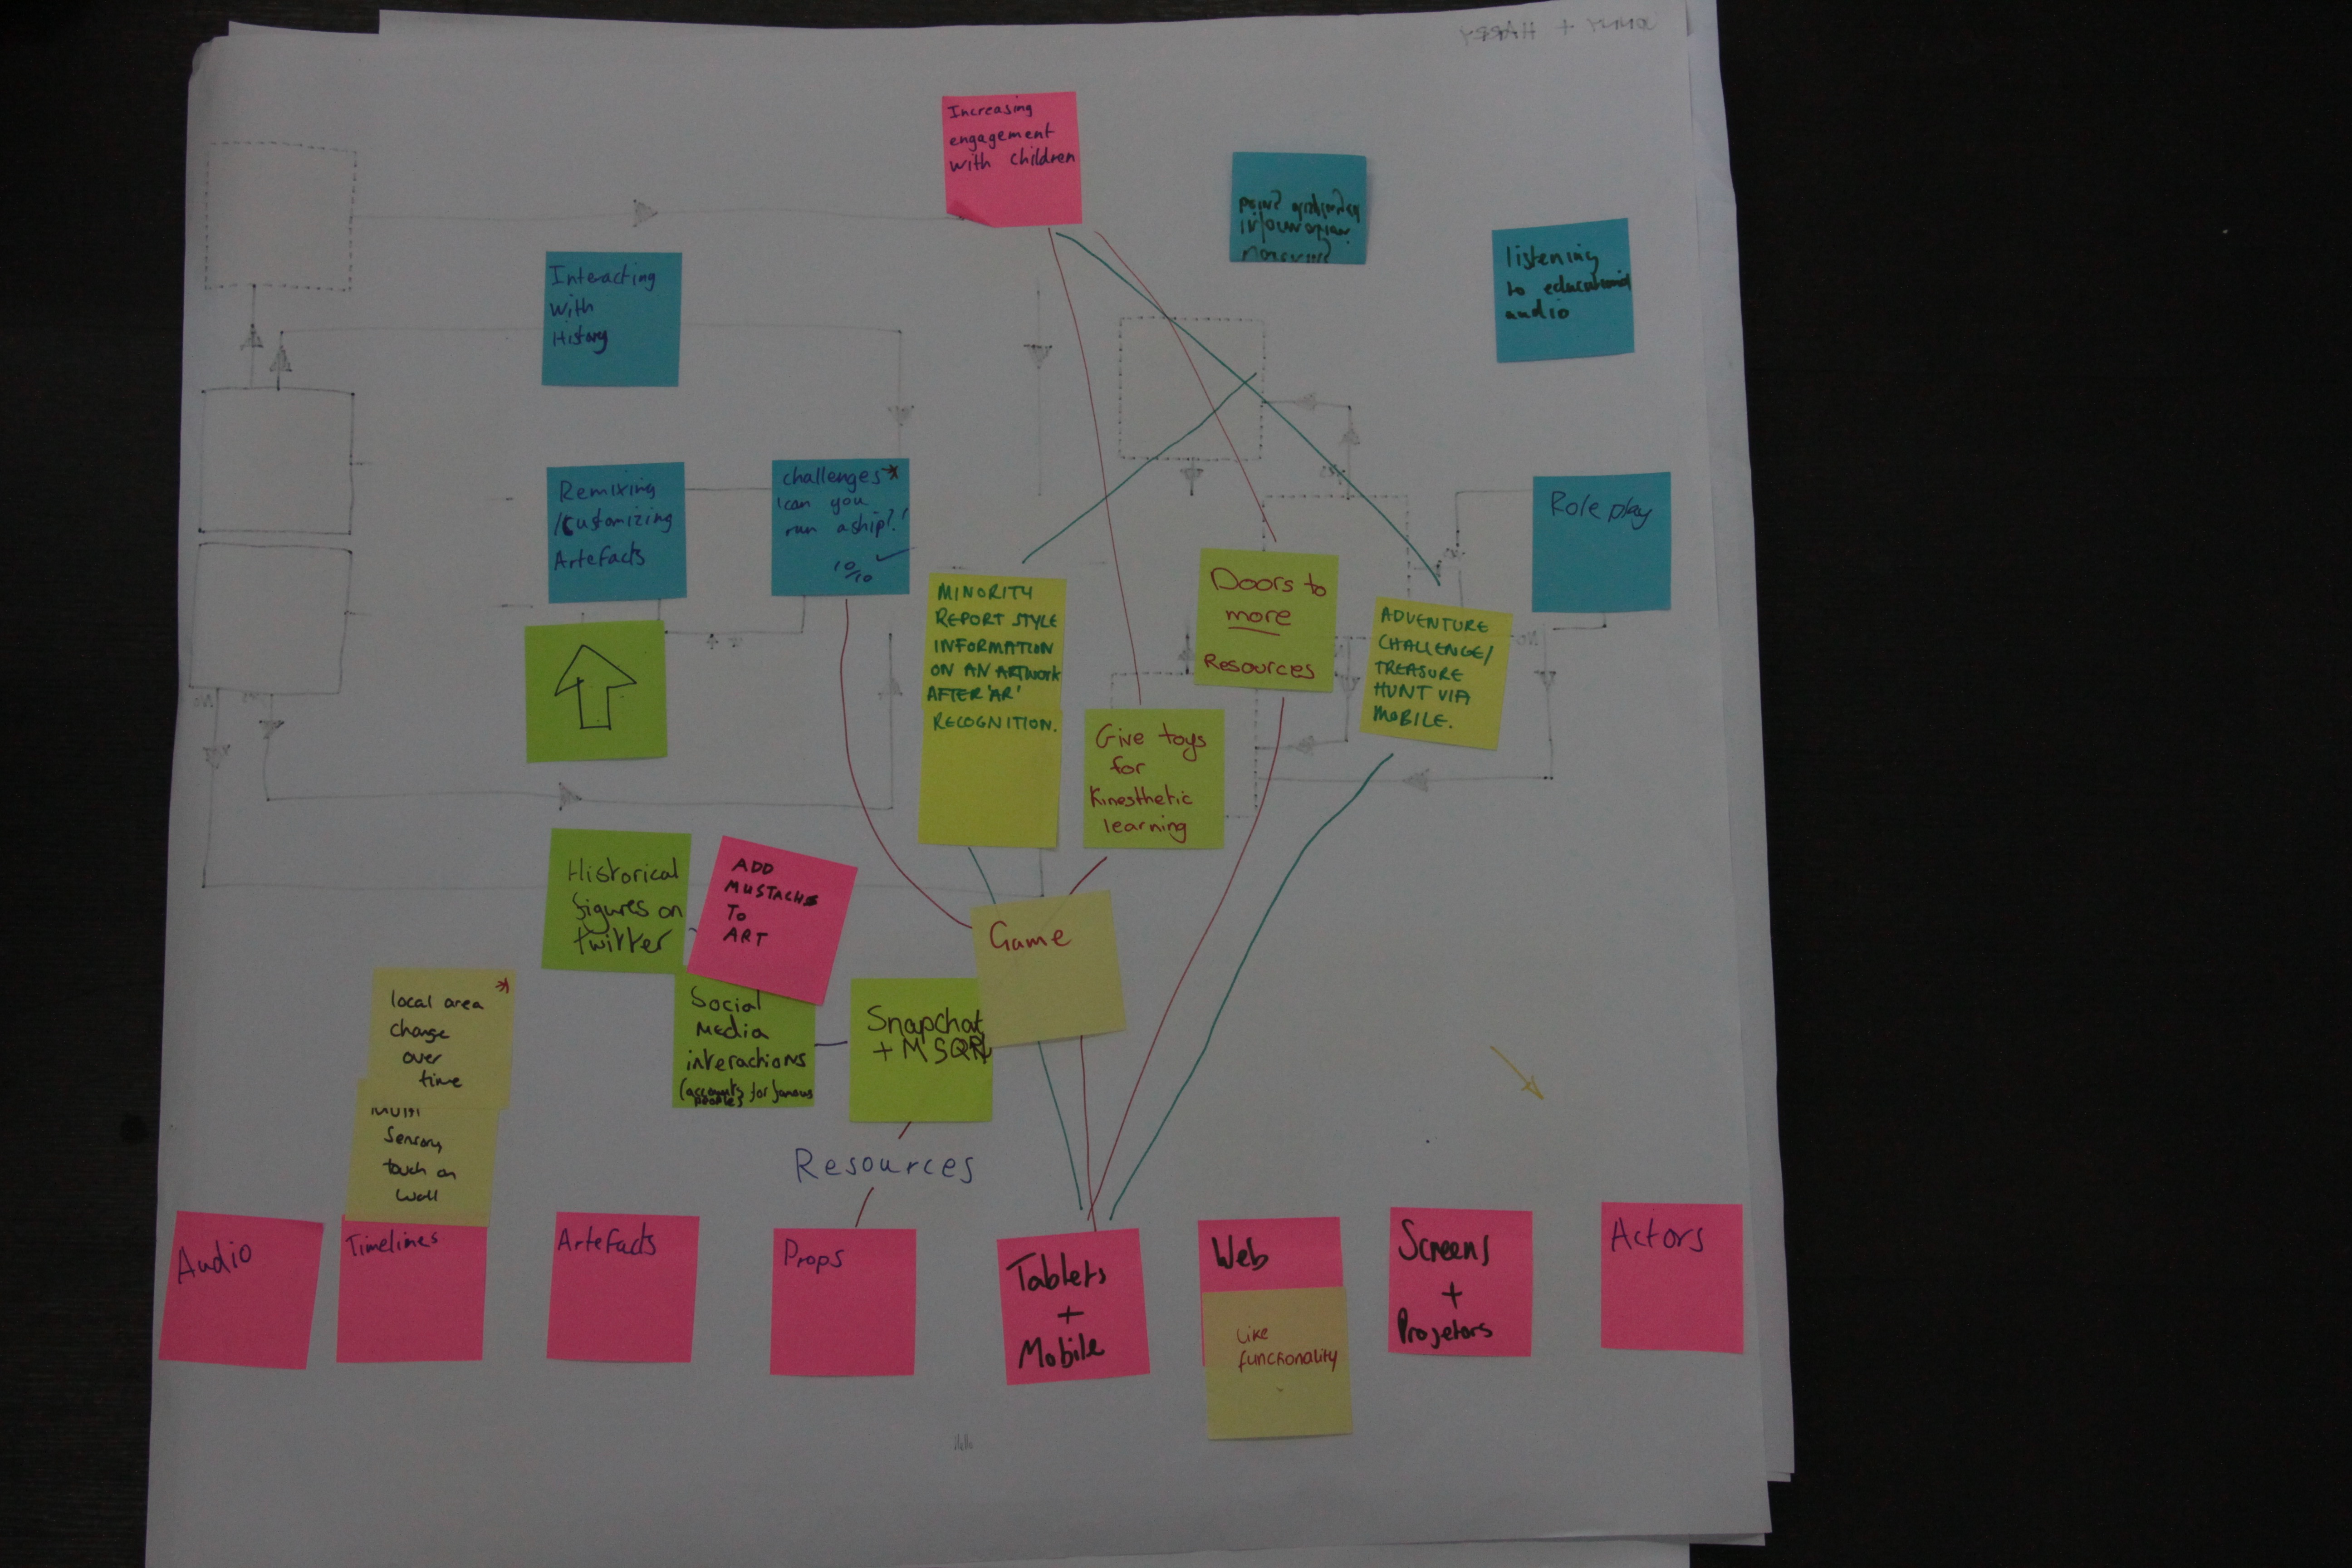 JONNY + HARRY
Increasing
engagement
with children
Interacting
with
History
listening
to educational
audio
Remixing
/Customizing
Artefacts
challenges*
'can you
run a ship?!'
10/10 ✓
Role play
MINORITY
REPORT STYLE
INFORMATION
ON AN ARTWORK
AFTER 'AR'
RECOGNITION.
Doors to
more
Resources
ADVENTURE
CHALLENGE/
TREASURE
HUNT VIA
MOBILE.
Give toys
for
Kinesthetic
learning
Historical
figures on
twitter
ADD
MUSTACHE
TO
ART
Game
local area
change
over
time
Social
Media
interactions
(accounts for famous
people)
Snapchat
+ MSQR
Multi
Sensory
touch on
wall
Resources
Audio
Timelines
Artefacts
Props
Tablets
+
Mobile
Web
Like
functionality
Screens
+
Projetors
Actors
No
No
Hello